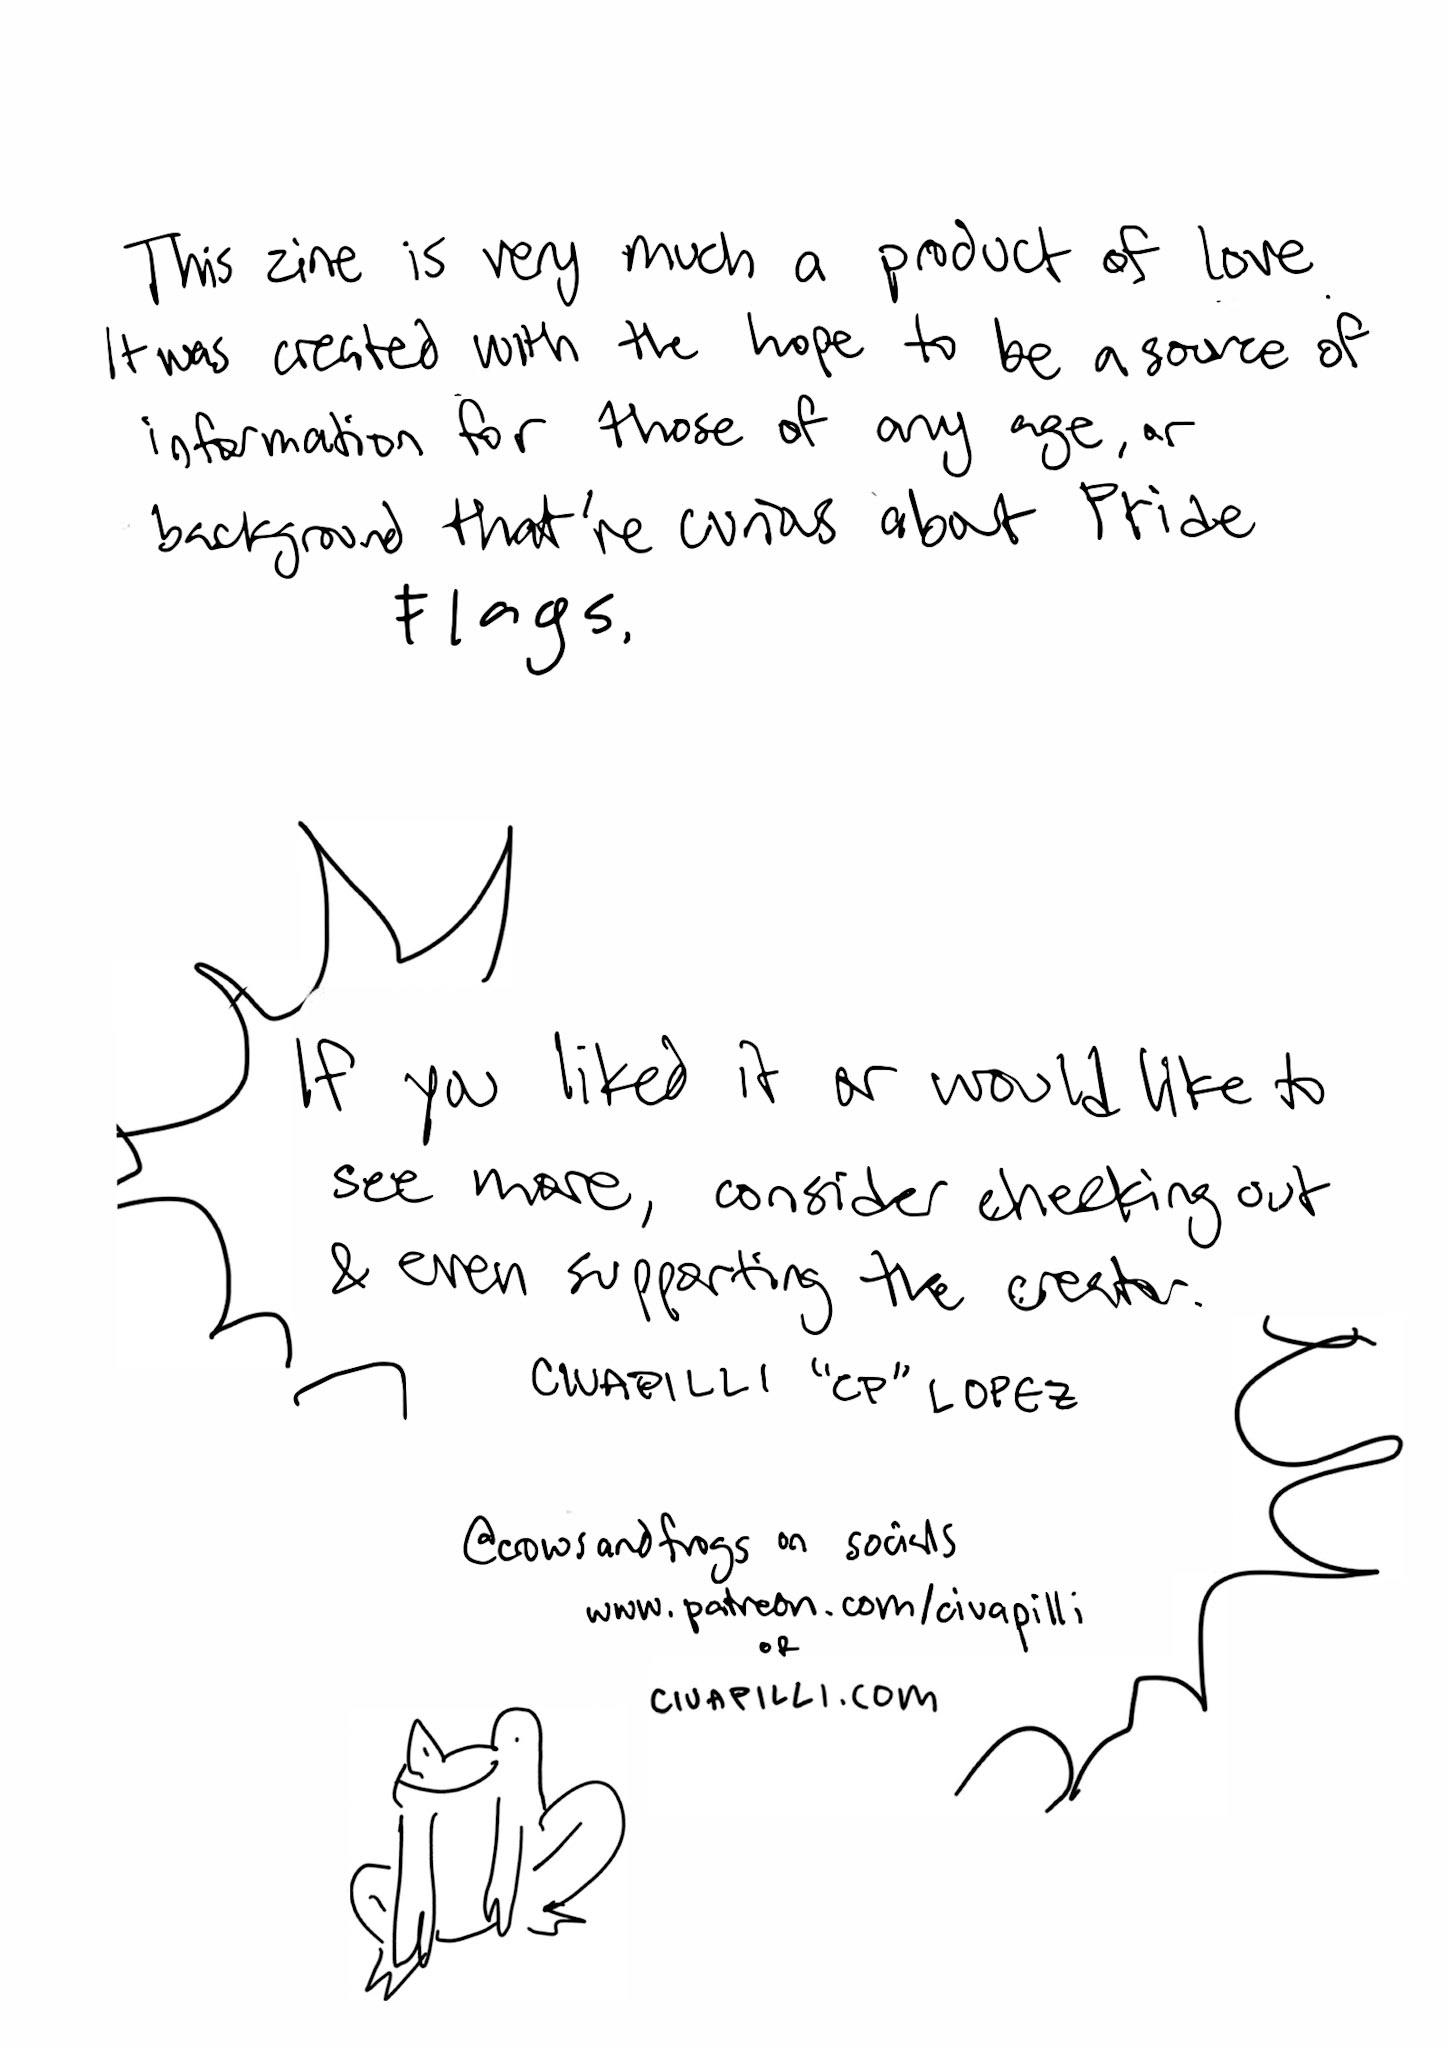 This zine is very much a product of love.
It was created with the hope to be a source of
information for those of any age, or
background that're curious about Pride
Flags.
If you liked it or would like to
see more, consider checking out
& even supporting the creator.
CIVAPILLI "CP" LOPEZ
@crowsandfrogs on socials
www.patreon.com/civapilli
OR
CIVAPILLI.COM